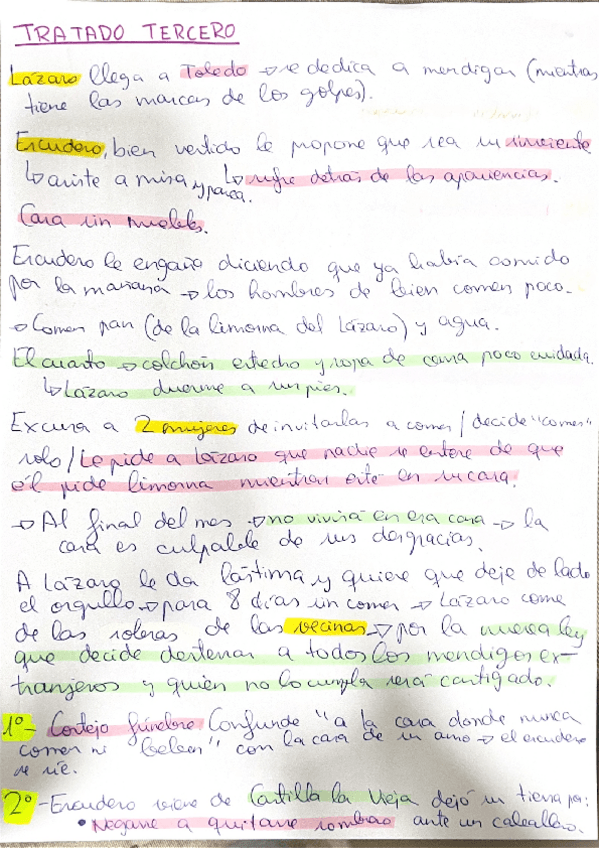 TRATADO TERCERO
Lázaro llega a Toledo → se dedica a mendigar (mientras
tiene las marcas de los golpes).
Escudero, bien vestido le propone que sea su sirviente
↳ asiste a misa y parca. ↳ sufre detrás de las apariencias.
Casa sin muebles.
Escudero le engaña diciendo que ya había comido
por la mañana → los hombres de bien comen poco.
→ Comen pan (de la limosna del Lázaro) y agua.
El cuarto → colchón estrecho y ropa de cama poco cuidada.
↳ Lázaro duerme a sus pies.
Excusa a 2 mujeres de invitarlas a comer / decide "comer"
solo / Le pide a Lázaro que nadie se entere de que
él pide limosna mientras esté en su casa.
→ Al final del mes → no vivirá en esa casa → la
casa es culpable de sus desgracias.
A Lázaro le da lástima y quiere que deje de lado
el orgullo → pasa 8 días sin comer → Lázaro come
de las sobras de las vecinas → por la nueva ley
que decide desterrar a todos los mendigos ex-
tranjeros y quién no lo cumpla será castigado.
1º- Cortejo fúnebre Confunde "a la casa donde nunca
comen ni beben" con la casa de su amo → el escudero
se ríe.
2º -Escudero viene de Castilla la Vieja dejó su tierra por:
• Negarse a quitarse sombrero ante un caballero.